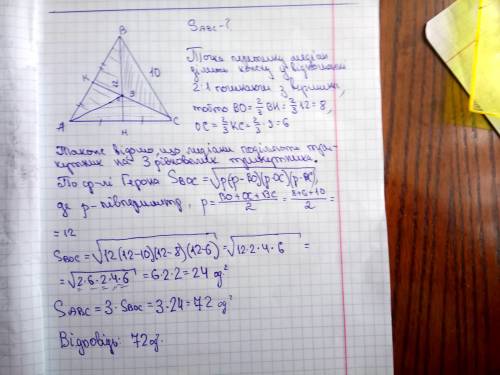 S_ABC - ?
B
K 12 10
9
A H C
Точка перетину медіан
ділить кожну у відношенні
2:1 починаючи з вершини,
тобто BO = 2/3 BH = 2/3 · 12 = 8,
OC = 2/3 KC = 2/3 · 9 = 6
Також відомо, що медіани поділяють три-
кутник на 3 рівновеликі трикутника.
По ф-лі Герона S_BOC = √p(p-BO)(p-OC)(p-BC),
де p - півпериметр, p = BO+OC+BC/2 = 8+6+10/2 =
= 12
S_BOC = √12(12-10)(12-8)(12-6) = √12·2·4·6 =
= √2·6·2·4·6 = 6·2·2 = 24 од²
S_ABC = 3·S_BOC = 3·24 = 72 од²
Відповідь: 72 од².